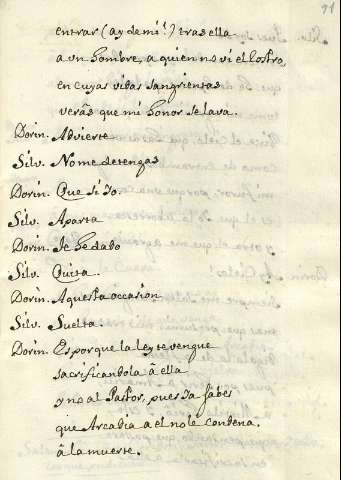 91
entrar (ay de mi!) tras ella
a un hombre, a quien no vi el Rostro,
en cuyas vidas sangrientas
verás que mi honor se lava.
Dorin. Advierte
Silv. No me detengas
Dorin. Que si Io.
Silv. Aparta
Dorin. Te he dado
Silv. Quita.
Dorin. Aquesta occasion
Silv. Suelta.
Dorin. Es porque la ley te vengue
sacrificandola â ella
y no al Pastor, pues Ia sabes
que Arcadia a el no le condena.
â la muerte.